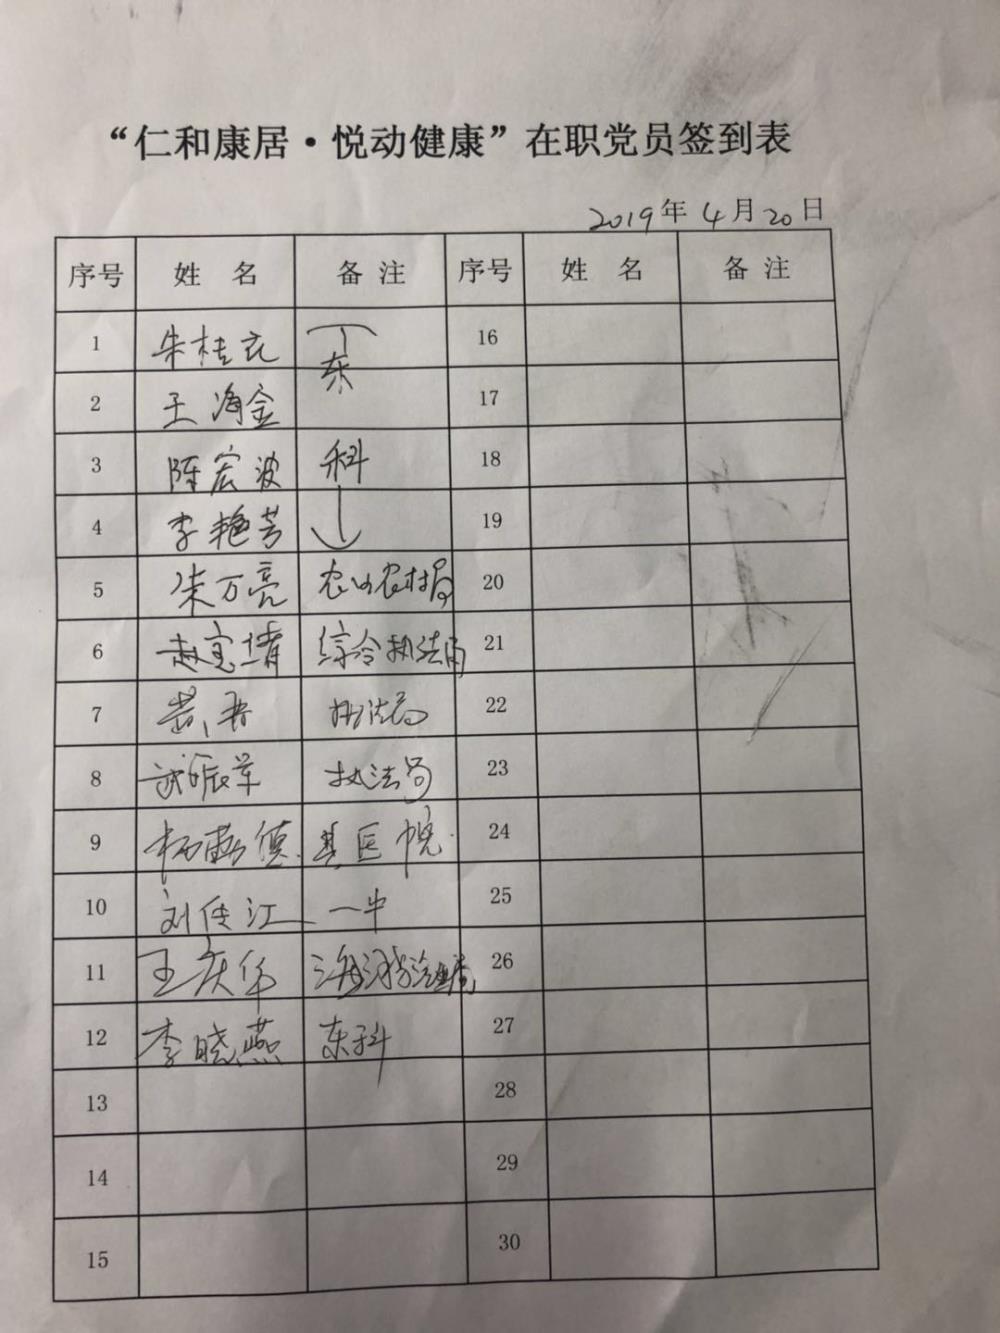 “仁和康居·悦动健康”在职党员签到表
2019年 4月20日
序号 姓名 备注 序号 姓名 备注
1 朱桂 东 16
2 王海金 17
3 陈宏波 科 18
4 李艳芳 19
5 朱万亮 农业农村局 20
6 赵宝靖 综合执法局 21
7 执法局 22
8 武振军 执法局 23
9 杨 德 县医院 24
10 刘传江 一中 25
11 王庆华 26
12 李晓燕 东科 27
13 28
14 29
15 30